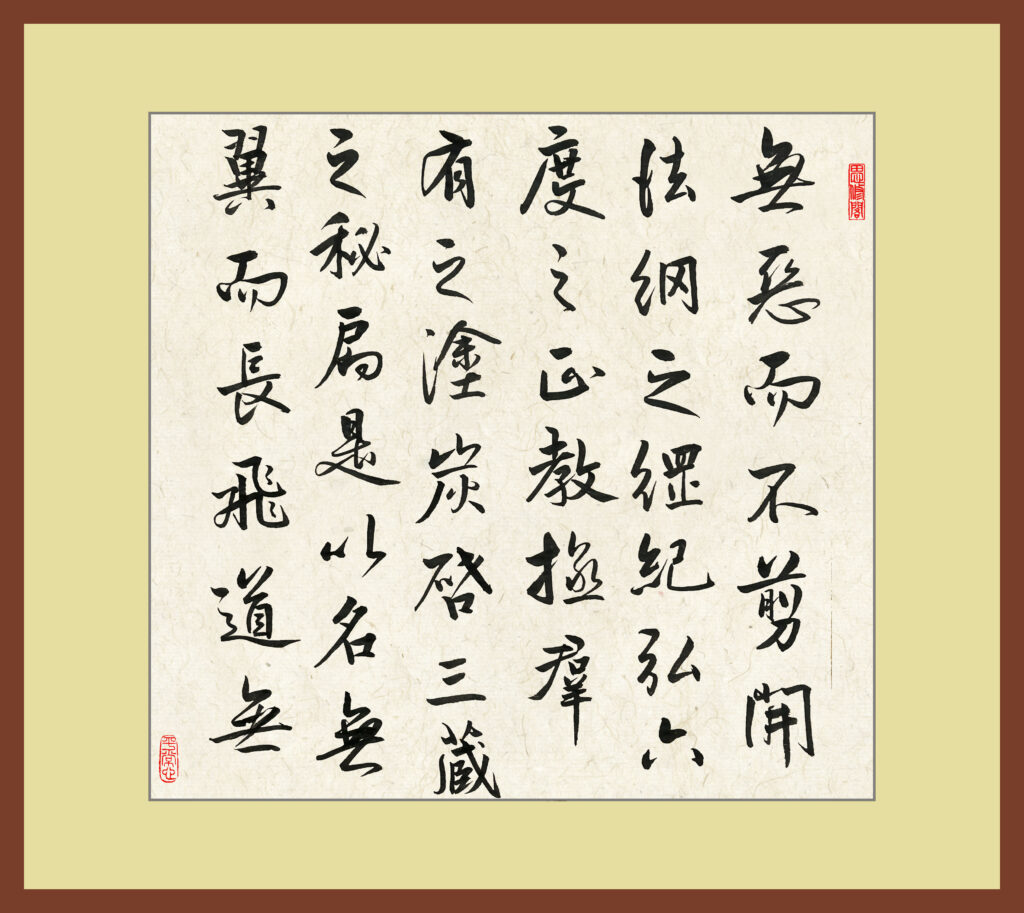 無惡而不剪開
法網之綱紀弘六
度之正教拯羣
有之塗炭啓三藏
之秘扃是以名無
翼而長飛道無
平常心